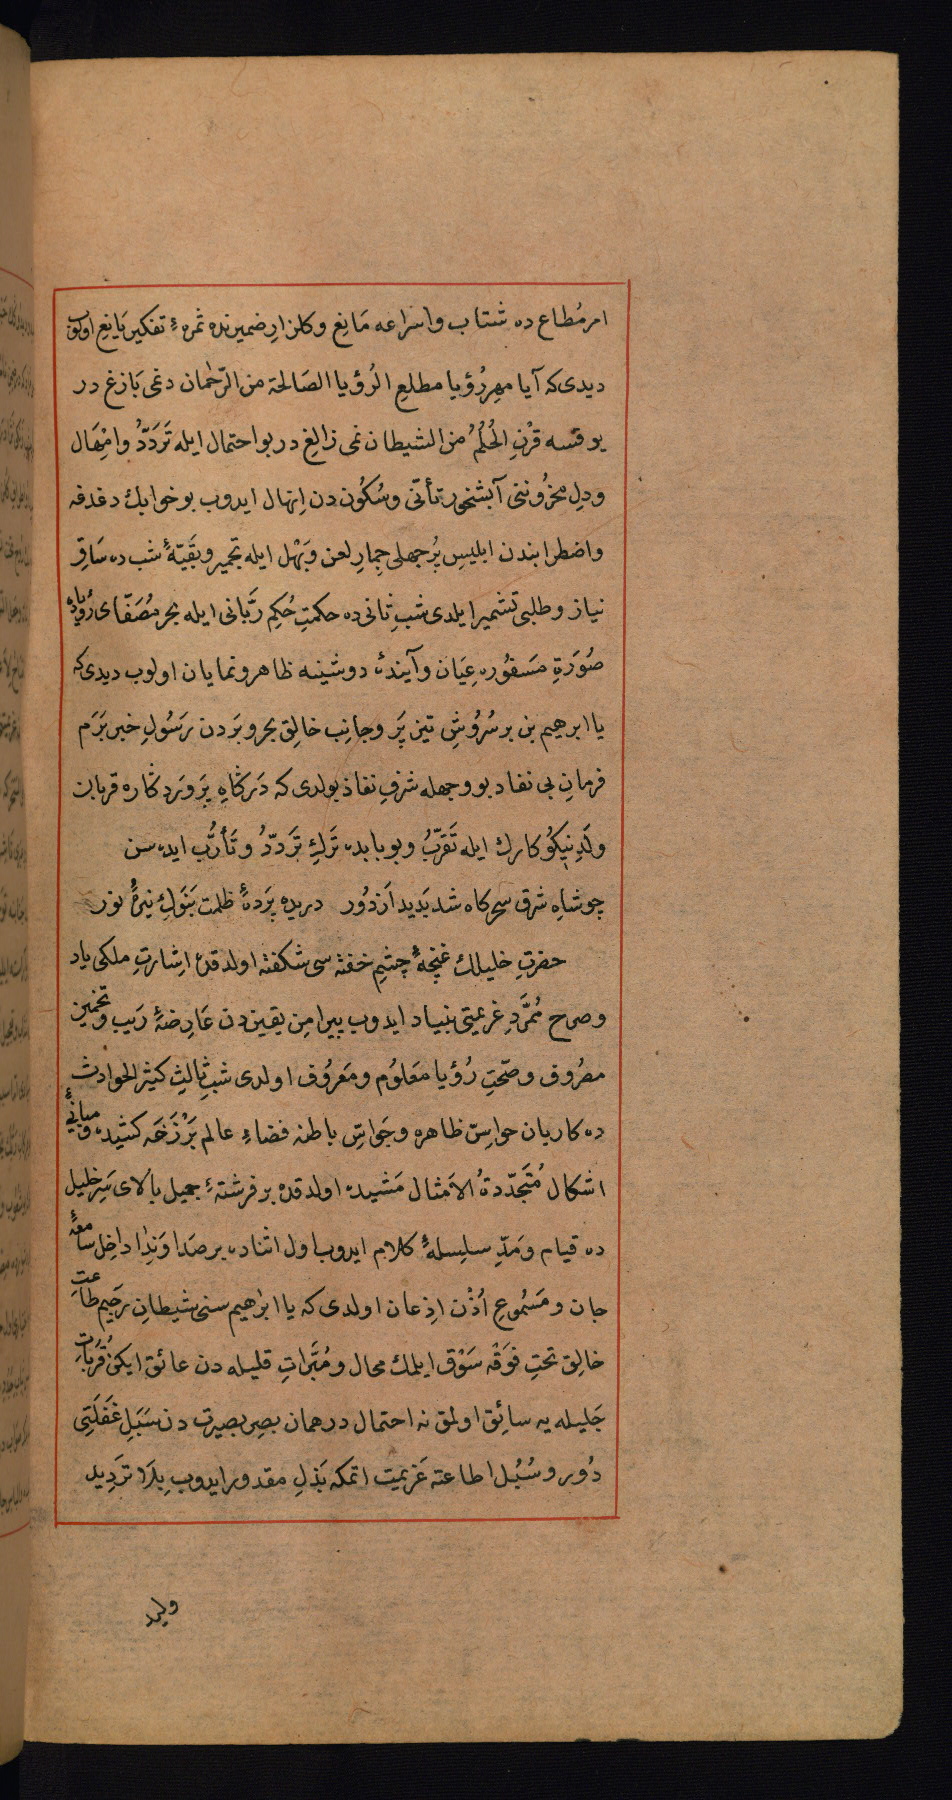 امر مُطاع ده شتاب واسراعه مَانِع وكلزارِ ضميرنده ثمرهٔ تفكير يَانِع اولوب
ديدی كه آيا مهرِ رُؤيا مطلعِ الرُؤيا الصَالحة من الرّحمان دغی بَازغ در
يوقسه قَرْنِ الحُلُمُ من الشيطان نمی زالِغ در بو احتمال ايله تَرَدّدُ وامْهَال
ودلِ محزُوننی آبشخورِ تأنّی وسُكُون دن اِنهال ايدوب بو خوابك دغدغه
واضطرابندن ابليسِ پُر جهلی جِمارِ لعن وبَهْل ايله تجمير وبقيّهٔ شب ده سَاقِ
نياز وطلبی تشمير ايلدی شبِ ثانی ده حكمتِ حُكِم رَبّانی ايله بحر مُصَفّای رُؤياده
صُورَةِ مَسفُوره عِيَان وآيندهٔ دوشينه ظاهر ونمايان اولوب ديدی كه
يا ابرهيم بن بر سُرُوشِ تيز پَر وجانِب خالِق بحر وبَردن رَسُولِ خبر بَرَم
فرمانِ بی نفاد بو وجهله شرفِ نفاذ بولدی كه دَركَاهِ پَروَردكاره قربان
ولَدِ نيكُو كارك ايله تَقَرّبُ وبو بابده تَركِ تَردّدُ وتَأَرُّب ايده سن
چو شاهِ شرق سحر كاه شد پَديد اَز دُور دريده پَردهٔ ظلمت بَنَوكِ نيزهٔ نور
حضرتِ خليلك غنچهٔ چشمِ خفته سی شكفته اولدقده اشارتِ ملكی ياد
وصرح مُمَّردِ غريمتی بنياد ايدوب پيرامنِ يقيندن عَارضهٔ رَيب وتخمين
مصرُوف وصحّتِ رُؤيا مَعلوُم ومَعرُوف اولدی شبِ ثالثِ كثير الحوادث
ده كاربان حواسّ ظاهره وجَواسّ باطنه فضاءِ عالم بَرْزَخَه كشيده ومبانیٔ
اشكال مُتَجدّدةُ الاَمثال مَشيده اولدقده بر فرشتهٔ جميل بالای سَرِ خليل
ده قيام ومَدِّ سلسلهٔ كلام ايدوب اول اثناده بر صدا وَنِدا داخِل سامعهٔ
جان ومَسْمُوعِ اُذْن اذعان اولدی كه يا ابراهيم سنی شيطانِ رَجيم طاعت
خالِق تحتِ فَوقَه سَوْق ايلمك محال ومُبَرّاتِ قليله دن عائق ايكن قُرُباتِ
جَليله يه سائِق اولمق نه احتمال در همان بصرِ بصيرت دن سَبَلِ غَفَلَتِی
دُور وسُبُل اطاعته عَزيمت اتمكه بَذلِ مقدور ايدوب بِلَا تَرديد
ولد